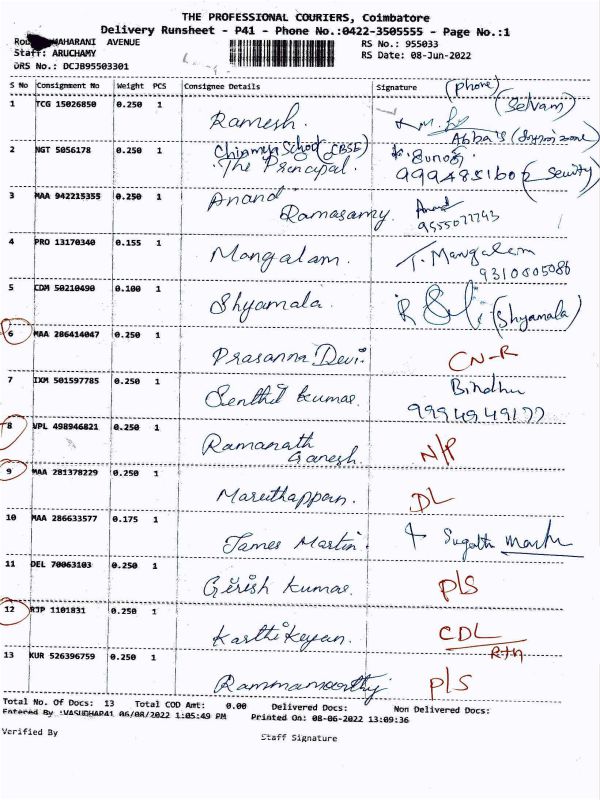 THE PROFESSIONAL COURIERS, Coimbatore
Delivery Runsheet - P41 - Phone No.:0422-3505555 - Page No.:1
MAHARANI AVENUE RS No.: 955033
Staff: ARUCHAMY RS Date: 08-Jun-2022
DRS No.: DCJB95503301
S No Consignment No Weight PCS Consignee Details Signature (phone)
1 TCG 15026850 0.250 1 Ramesh. (Selvam)
2 NGT 5056178 0.250 1 Chinmya School (CBSE)
The Principal. 9994851602 (Security)
3 MAA 942215355 0.250 1 Anand Anand
Ramasamy.
4 PRO 13170340 0.155 1 Mangalam. T. Mangalam
9310605086
5 CDM 50210490 0.100 1 Shyamala (Shyamala)
6 MAA 286414047 0.250 1 Prasanna Devi. CN-R
7 IXM 501597785 0.250 1 Senthil Kumar. Bindhu
9994949177
8 VPL 498946821 0.250 1 Ramanath N/P
Ganesh.
9 MAA 281378229 0.250 1 Maruthappan. DL
10 MAA 286633577 0.175 1 James Martin.
11 DEL 70063103 0.250 1 Girish Kumar. P/S
12 RJP 1101831 0.250 1 Karthikeyan. CDL
Rtn
13 KUR 526396759 0.250 1 Rammamoorthy P/S
Total No. Of Docs: 13 Total COD Amt: 0.00 Delivered Docs: Non Delivered Docs:
Entered By :VASUDHAP41 06/08/2022 1:05:49 PM Printed On: 08-06-2022 13:09:36
Verified By Staff Signature